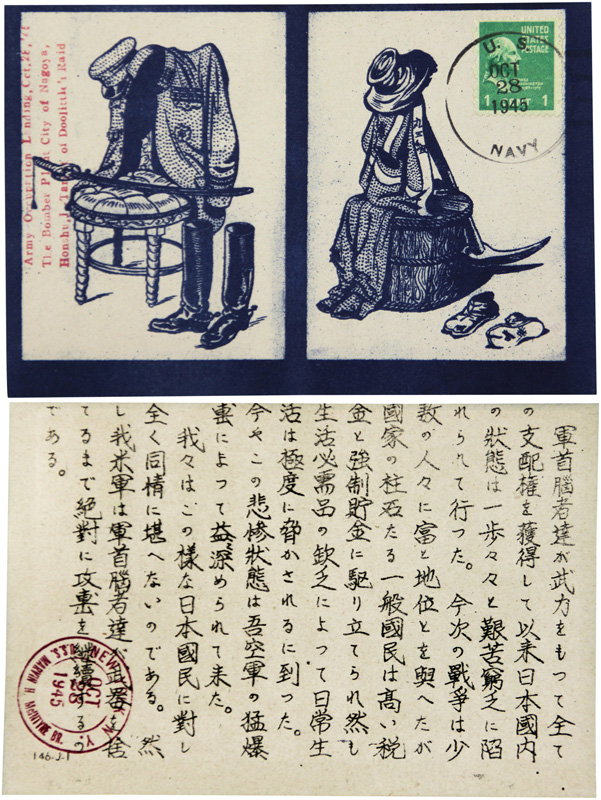 The Bomber Plant City of Nagoya,
of Doolittle's Raid
UNITED
STATES
POSTAGE
1 1
U. S.
OCT
28
1945
NAVY
軍首腦者達が武力をもつて全て
の支配權を獲得して以來日本國内
の狀態は一歩々々と艱苦窮乏に陷
れられて行つた。今次の戰爭は少
数の人々に富と地位とを與へたが
國家の柱石たる一般國民は髙い税
金と強制貯金に駆り立てられ然も
生活必需品の欽乏によつて日常生
活は極度に脅かされるに到つた。
今やこの悲惨狀態は吾空軍の猛爆
撃によつて益深められて来た。
我々はこの樣な日本國民に對し
全く同情に堪へないのである。然
し我米軍は軍首腦者達が武器を捨
てるまで絶對に攻撃を継續するの
である。
OCT
28
1945
146-J-1